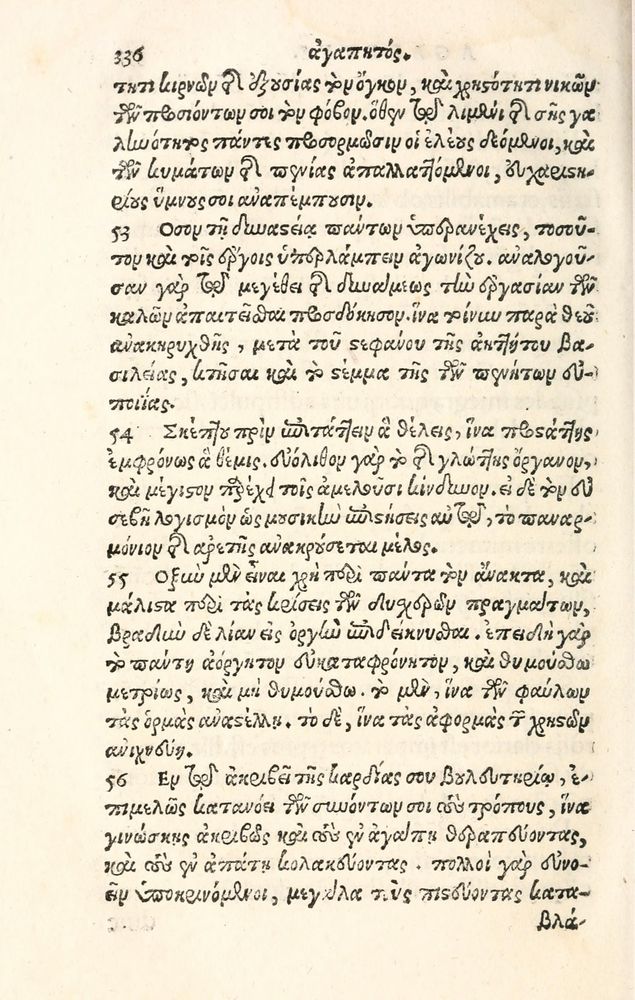 336 ἀγαπητός.
τητι κιρνῶν τῆς ἐξουσίας τὸν ὄγκον, καὶ χρηστότητι νικῶν
τῶν προσιόντων σοι τὸν φόβον. ὅθεν τῷ λιμένι τῆς σῆς γα-
λινότητος πάντες προσορμῶσιν οἱ ἐλέους δεόμενοι, καὶ
τῶν κυμάτων τῆς πενίας ἀπαλλαττόμενοι, εὐχαριστη-
ρίους ὕμνους σοι ἀναπέμπουσιν.
53 Ὅσον τῇ δυναστείᾳ πάντων ὑπερανέχεις, τοσοῦ-
τον καὶ τοῖς ἔργοις ὑπερλάμπειν ἀγωνίζου. ἀναλογοῦ-
σαν γὰρ τῷ μεγέθει τῆς δυνάμεως τὴν ἐργασίαν τῶν
καλῶν ἀπαιτεῖσθαι προσδόκησον. ἵνα τοίνυν παρὰ θεοῦ
ἀνακηρυχθῇς, μετὰ τοῦ στεφάνου τῆς ἀηττήτου βα-
σιλείας, κτῆσαι καὶ τὸ στέμμα τῆς τῶν πενήτων εὐ-
ποιΐας.
54 Σκέπτου πρὶν ἐπιτάττειν ἃ θέλεις, ἵνα προστάττῃς
ἐμφρόνως ἃ θέμις. εὐόλισθον γὰρ τὸ τῆς γλώττης ὄργανον,
καὶ μέγιστον παρέχει τοῖς ἀμελοῦσι κίνδυνον. εἰ δὲ τὸν εὐ
σεβῆ λογισμὸν ὡς μουσικὸν ἐπιστήσεις αὐτῷ, τὸ παναρ-
μόνιον τῆς ἀρετῆς ἀνακρούσεται μέλος.
55 Ὀξὺν μὲν εἶναι χρὴ περὶ πάντα τὸν ἄνακτα, καὶ
μάλιστα περὶ τὰς κρίσεις τῶν δυσχερῶν πραγμάτων,
βραδὺν δὲ λίαν εἰς ὀργὴν ἐπιδείκνυσθαι. ἐπειδὴ γὰρ
τὸ πάντη ἀόργητον εὐκαταφρόνητον, καὶ θυμούσθω
μετρίως, καὶ μὴ θυμούσθω. τὸ μὲν, ἵνα τῶν φαύλων
τὰς ὁρμὰς ἀναστέλλῃ. τὸ δὲ, ἵνα τὰς ἀφορμὰς τῶν χρηστῶν
ἀνιχνεύῃ.
56 Ἐν τῷ ἀκριβεῖ τῆς καρδίας σου βουλευτηρίῳ, ἐ-
πιμελῶς κατανόει τῶν συνόντων σοι τοὺς τρόπους, ἵνα
γινώσκῃς ἀκριβῶς καὶ τοὺς ἐν ἀγάπῃ θεραπεύοντας,
καὶ τοὺς ἐν ἀπάτῃ κολακεύοντας. πολλοὶ γὰρ εὐνο-
εῖν ὑποκρινόμενοι, μεγάλα τοὺς πιστεύοντας κατα-
βλά-